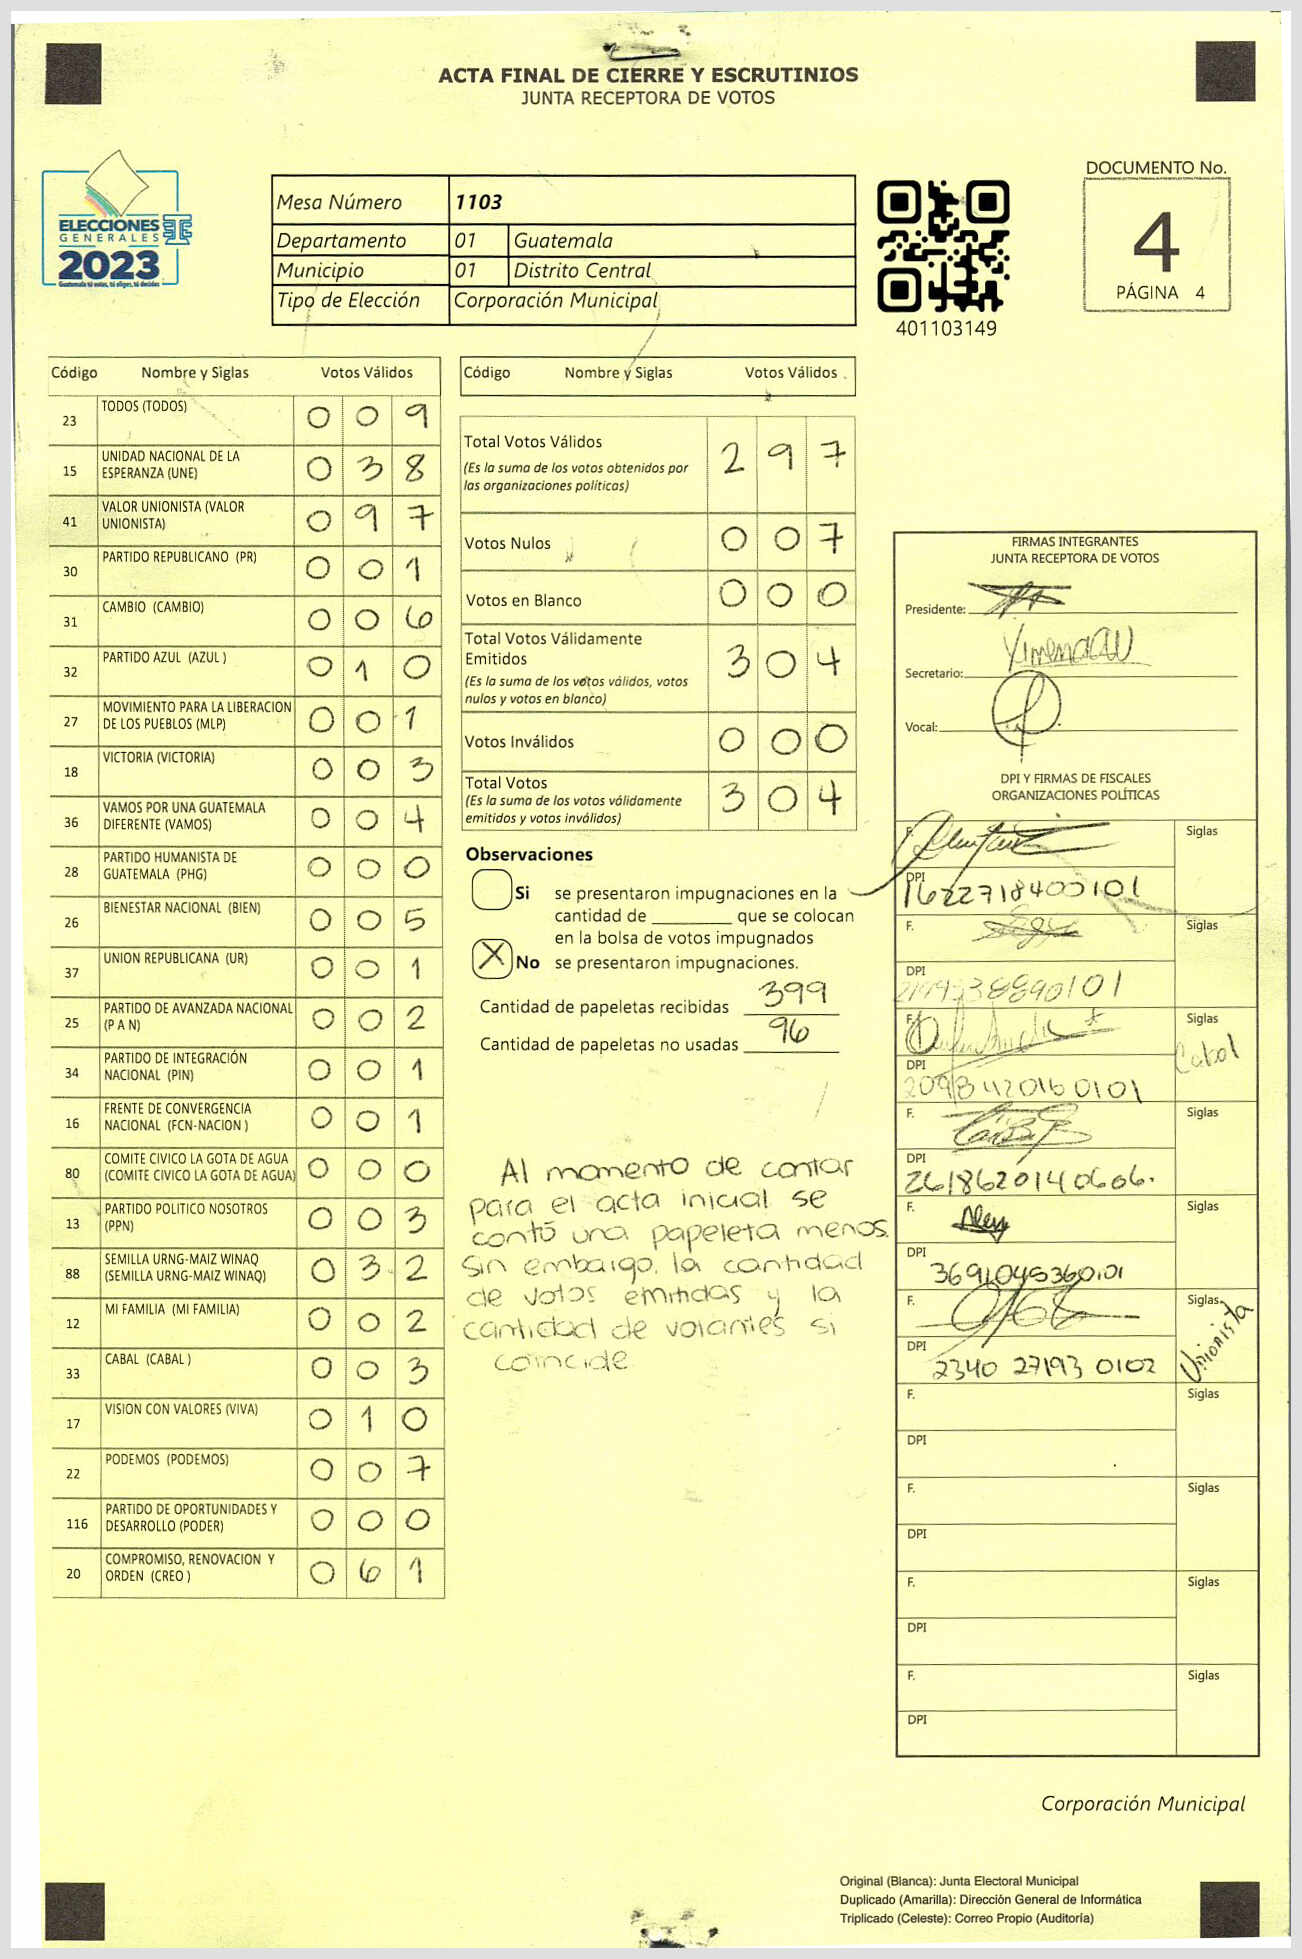 ACTA FINAL DE CIERRE Y ESCRUTINIOS
JUNTA RECEPTORA DE VOTOS
ELECCIONES
GENERALES
2023
Guatemala tú votas, tú eliges, tú decides
Mesa Número 1103
Departamento 01 Guatemala
Municipio 01 Distrito Central
Tipo de Elección Corporación Municipal
401103149
DOCUMENTO No.
4
PÁGINA 4
Código Nombre y Siglas Votos Válidos
23 TODOS (TODOS) 0 0 9
15 UNIDAD NACIONAL DE LA
ESPERANZA (UNE) 0 3 8
41 VALOR UNIONISTA (VALOR
UNIONISTA) 0 9 7
30 PARTIDO REPUBLICANO (PR) 0 0 1
31 CAMBIO (CAMBIO) 0 0 6
32 PARTIDO AZUL (AZUL ) 0 1 0
27 MOVIMIENTO PARA LA LIBERACION
DE LOS PUEBLOS (MLP) 0 0 1
18 VICTORIA (VICTORIA) 0 0 3
36 VAMOS POR UNA GUATEMALA
DIFERENTE (VAMOS) 0 0 4
28 PARTIDO HUMANISTA DE
GUATEMALA (PHG) 0 0 0
26 BIENESTAR NACIONAL (BIEN) 0 0 5
37 UNION REPUBLICANA (UR) 0 0 1
25 PARTIDO DE AVANZADA NACIONAL
(P A N) 0 0 2
34 PARTIDO DE INTEGRACIÓN
NACIONAL (PIN) 0 0 1
16 FRENTE DE CONVERGENCIA
NACIONAL (FCN-NACION ) 0 0 1
80 COMITE CIVICO LA GOTA DE AGUA
(COMITE CIVICO LA GOTA DE AGUA) 0 0 0
13 PARTIDO POLITICO NOSOTROS
(PPN) 0 0 3
88 SEMILLA URNG-MAIZ WINAQ
(SEMILLA URNG-MAIZ WINAQ) 0 3 2
12 MI FAMILIA (MI FAMILIA) 0 0 2
33 CABAL (CABAL ) 0 0 3
17 VISION CON VALORES (VIVA) 0 1 0
22 PODEMOS (PODEMOS) 0 0 7
116 PARTIDO DE OPORTUNIDADES Y
DESARROLLO (PODER) 0 0 0
20 COMPROMISO, RENOVACION Y
ORDEN (CREO ) 0 6 1
Código Nombre y Siglas Votos Válidos
Total Votos Válidos 2 9 7
(Es la suma de los votos obtenidos por
las organizaciones políticas)
Votos Nulos 0 0 7
Votos en Blanco 0 0 0
Total Votos Válidamente
Emitidos 3 0 4
(Es la suma de los votos válidos, votos
nulos y votos en blanco)
Votos Inválidos 0 0 0
Total Votos 3 0 4
(Es la suma de los votos válidamente
emitidos y votos inválidos)
Observaciones
Si se presentaron impugnaciones en la
cantidad de ________ que se colocan
en la bolsa de votos impugnados
X No se presentaron impugnaciones.
Cantidad de papeletas recibidas 399
Cantidad de papeletas no usadas 96
Al momento de contar
para el acta inicial se
contó una papeleta menos.
Sin embargo, la cantidad
de votos emitidas y la
cantidad de votantes si
coincide
FIRMAS INTEGRANTES
JUNTA RECEPTORA DE VOTOS
Presidente:
Secretario:
Vocal:
DPI Y FIRMAS DE FISCALES
ORGANIZACIONES POLÍTICAS
F. Siglas
DPI
1622718400101
F. Siglas
DPI
F. Siglas
Cabal
DPI
F. Siglas
DPI
2618620140606.
F. Siglas
DPI
F. Siglas
Unionista
DPI
2340 27193 0102
F. Siglas
DPI
F. Siglas
DPI
F. Siglas
DPI
F. Siglas
DPI
Corporación Municipal
Original (Blanca): Junta Electoral Municipal
Duplicado (Amarilla): Dirección General de Informática
Triplicado (Celeste): Correo Propio (Auditoría)